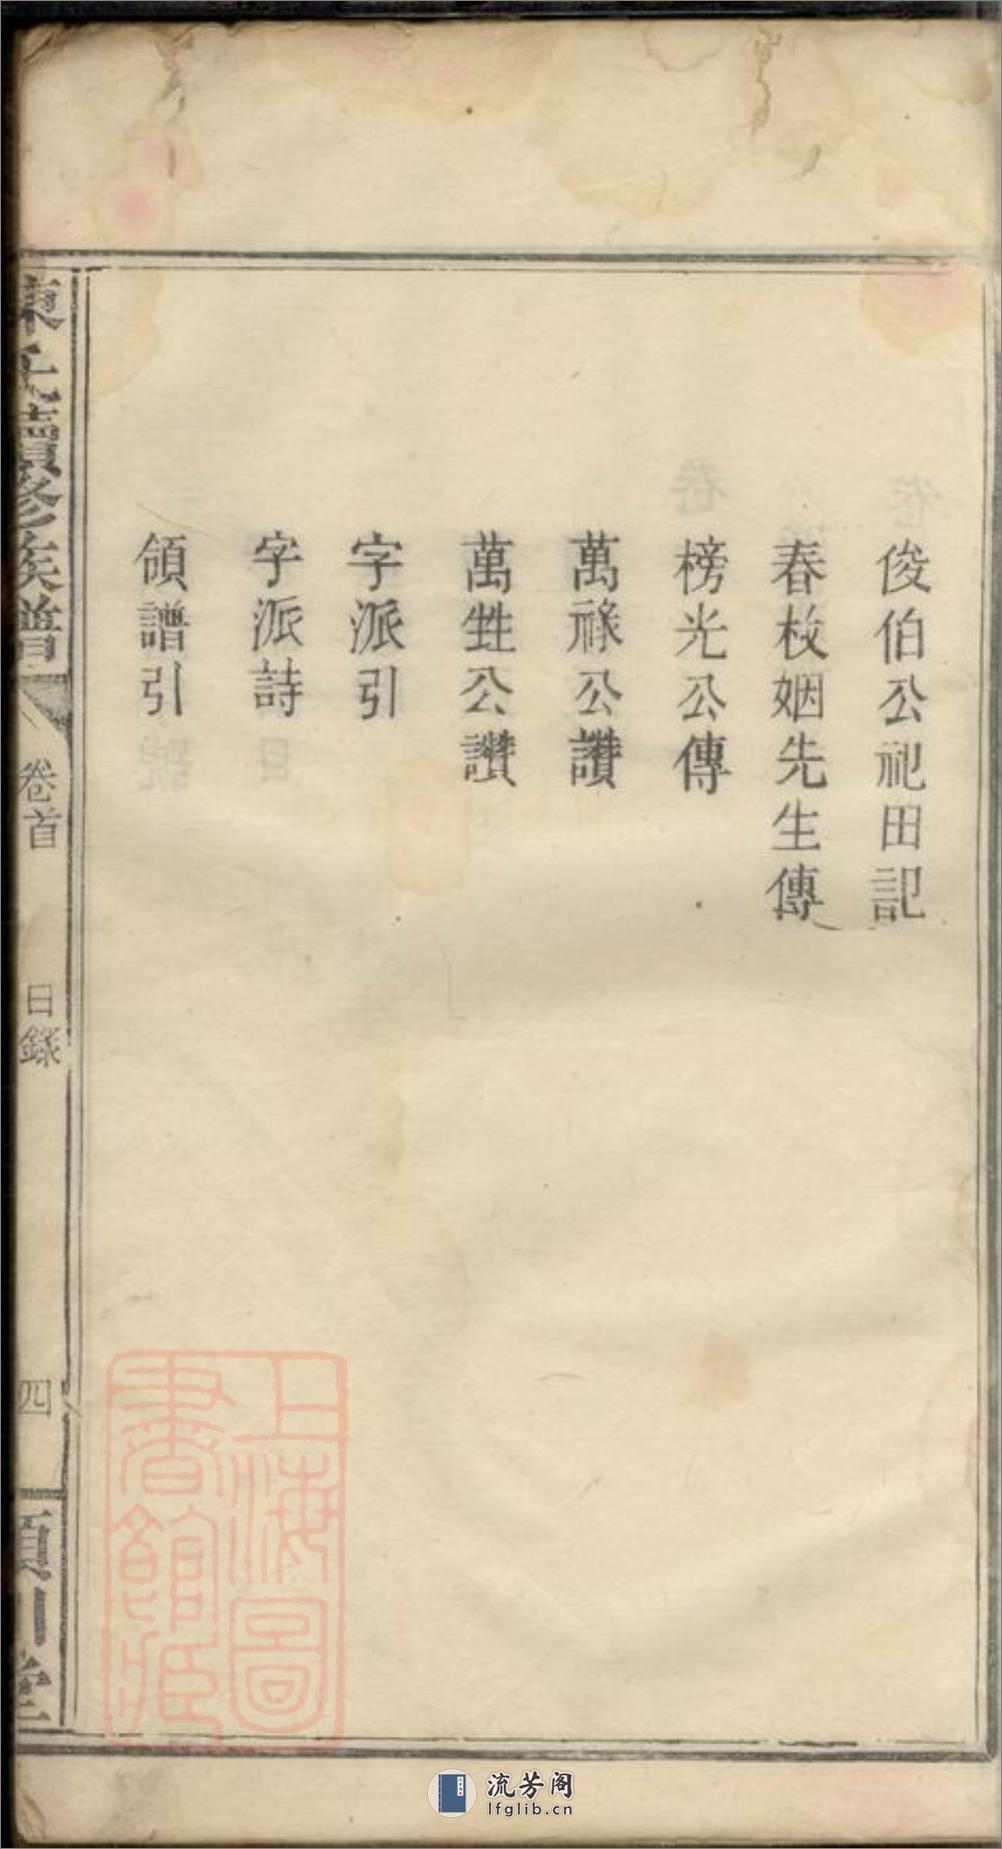 俊伯公祀田記
春枚姻先生傳
榜光公傳
萬祿公讚
萬甡公讚
字派引
字派詩
領譜引
陳氏續修族譜
卷首
目錄
四
潁川堂
上海圖書館藏
流芳阁
lfglib.cn